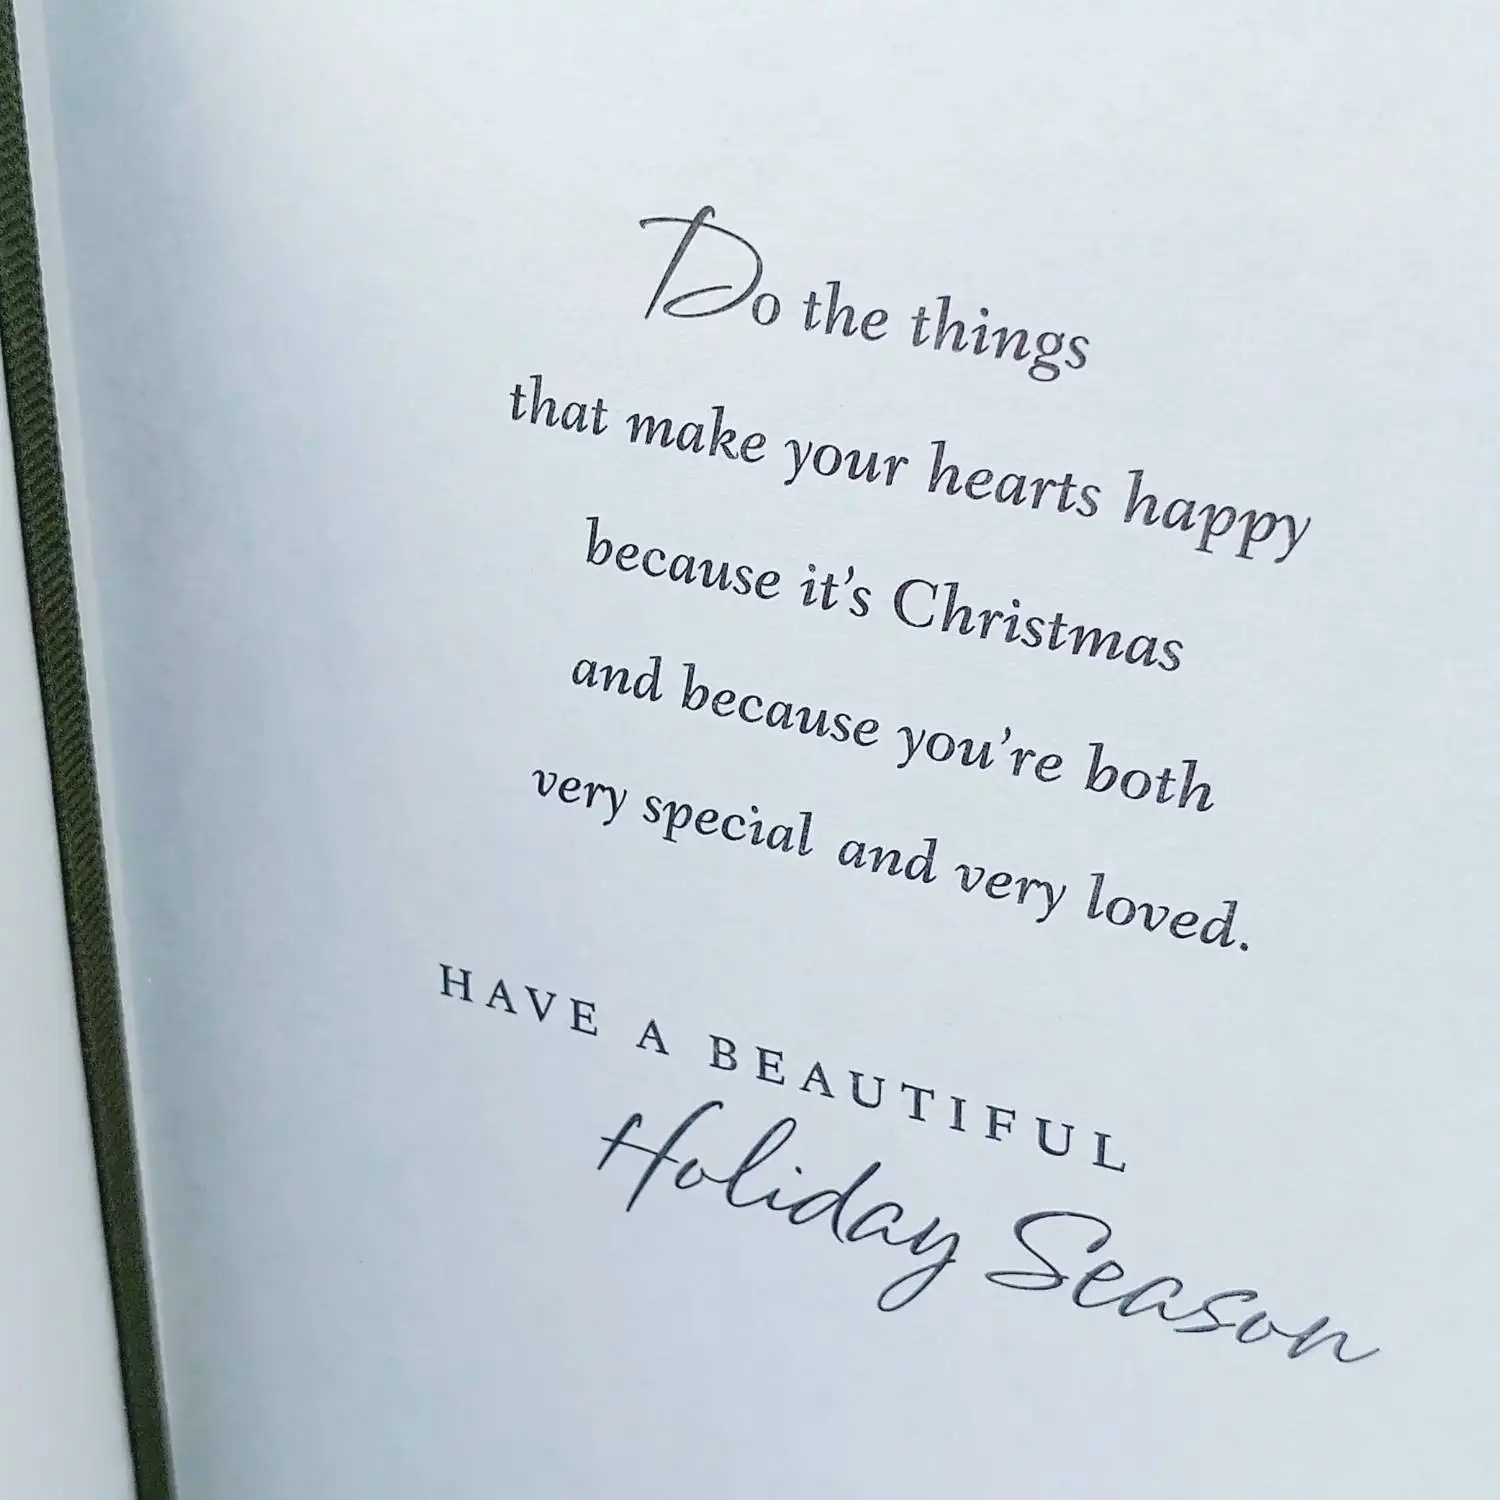 Do the things
that make your hearts happy
because it’s Christmas
and because you’re both
very special and very loved.
HAVE A BEAUTIFUL
Holiday Season